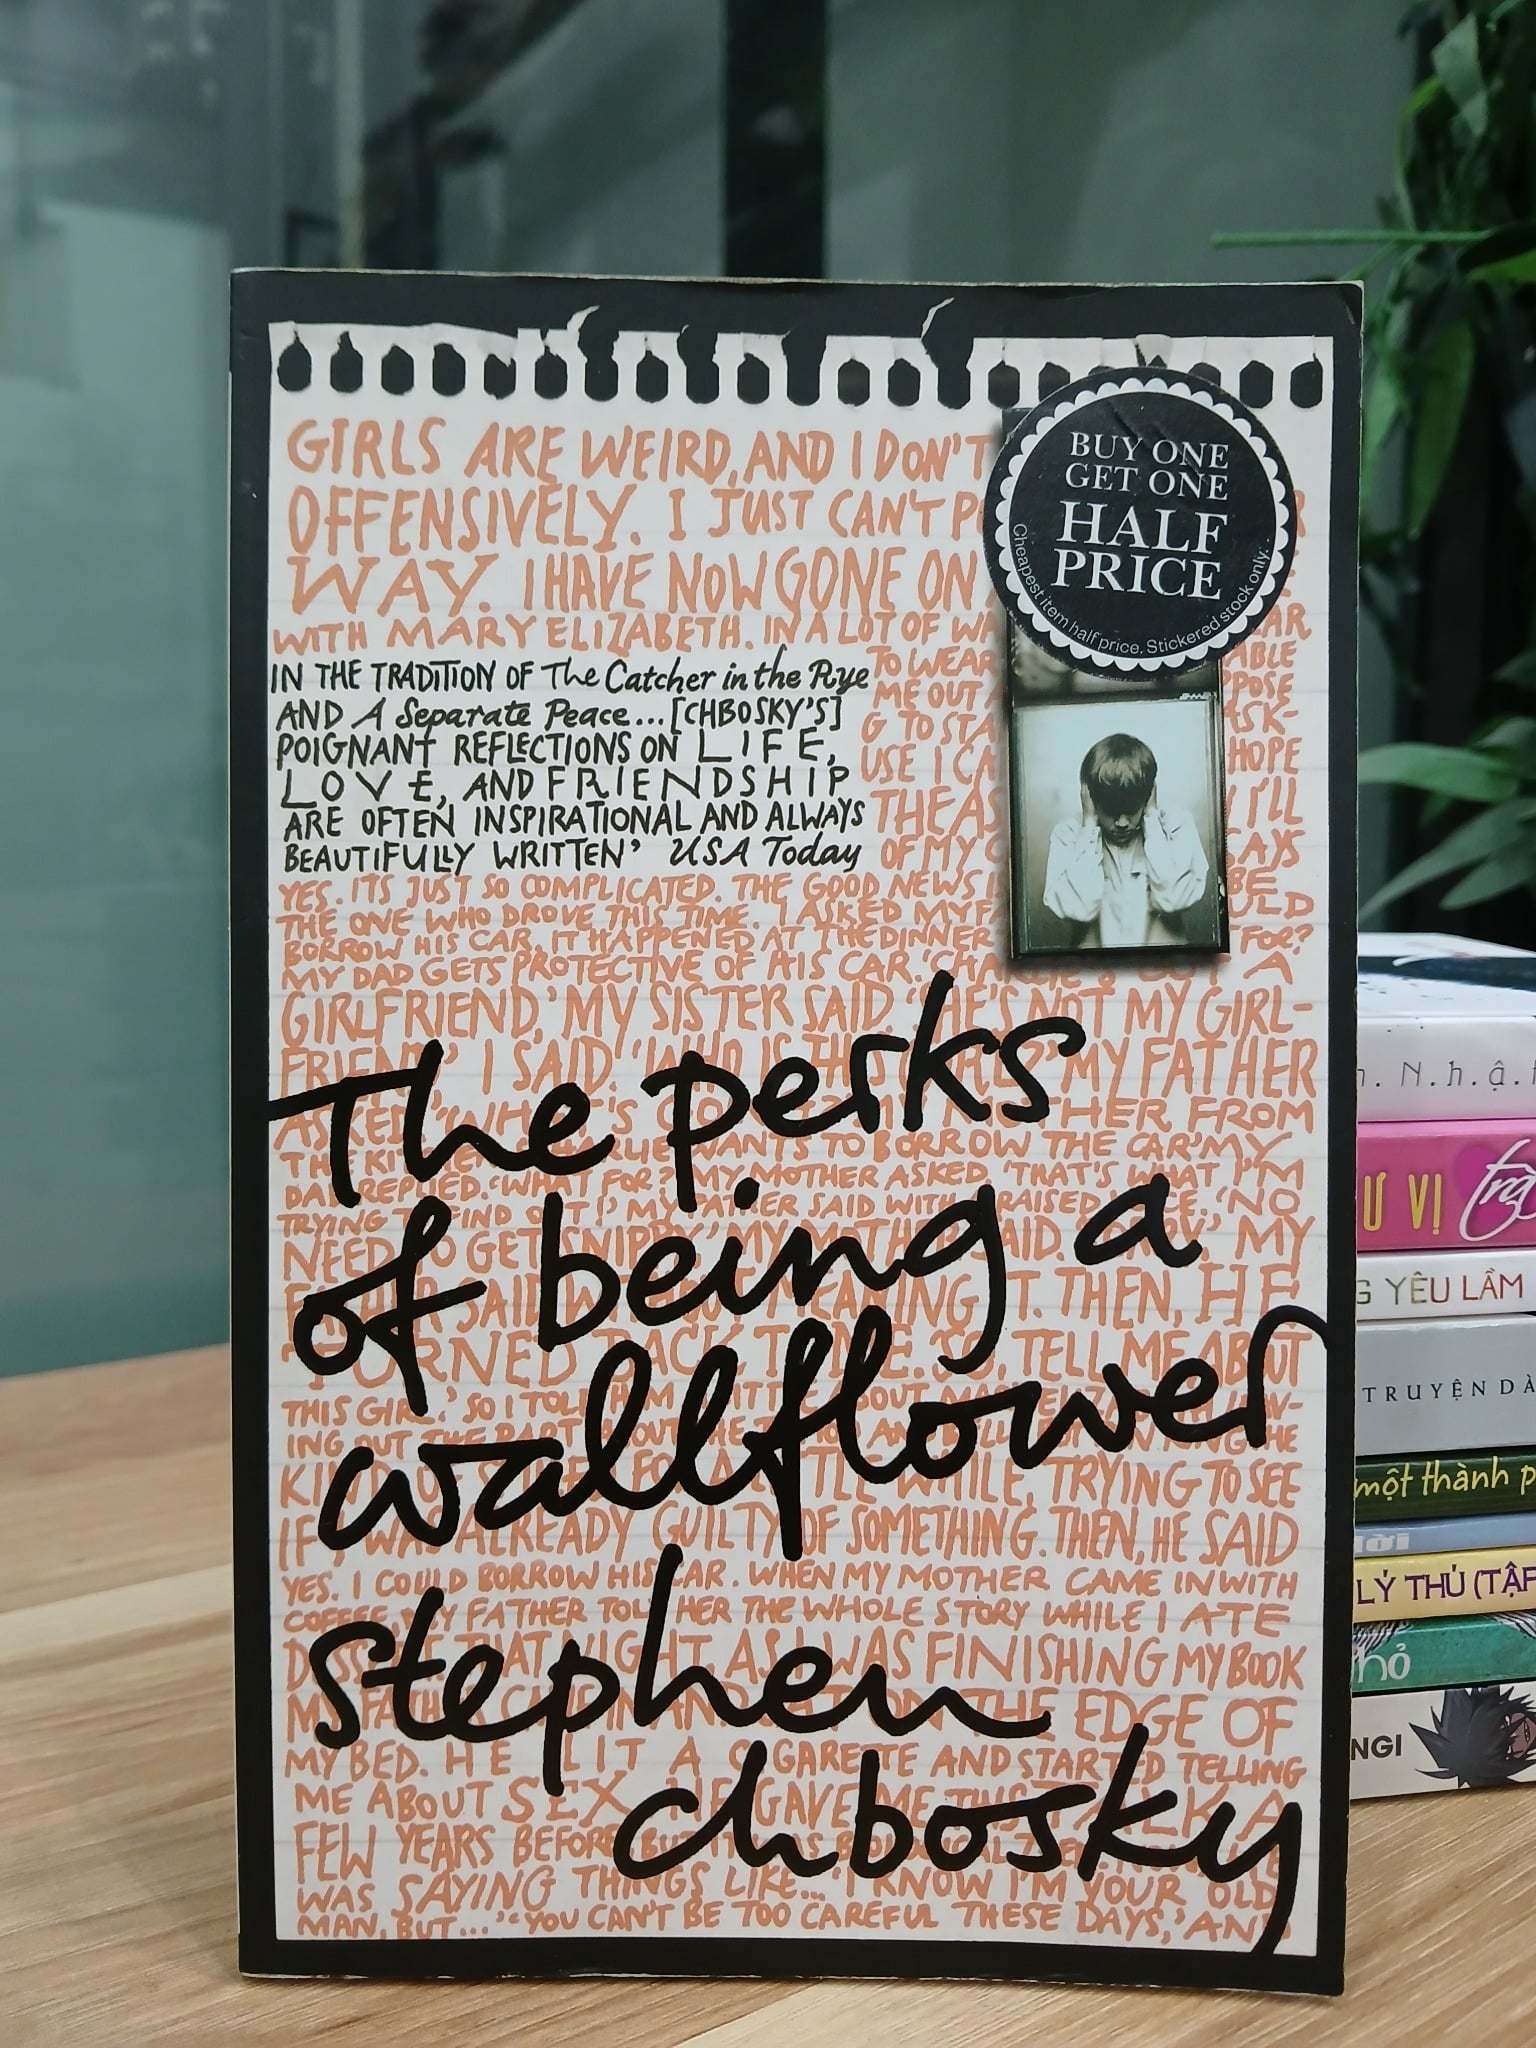 GIRLS ARE WEIRD, AND I DON'T
OFFENSIVELY. I JUST CAN'T
WAY. I HAVE NOW GONE ON
WITH MARY ELIZABETH. IN A LOT OF
BUY ONE
GET ONE
HALF
PRICE
Cheapest item half price. Stickered stock only.
IN THE TRADITION OF The Catcher in the Rye
AND A Separate Peace...[CHBOSKY'S]
POIGNANT REFLECTIONS ON LIFE,
LOVE, AND FRIENDSHIP
ARE OFTEN INSPIRATIONAL AND ALWAYS
BEAUTIFULLY WRITTEN' USA Today
TO WEAR
ME OUT
G TO STA
ASK-
USE I CA
HOPE
THE AS
I'LL
OF MY
YES. ITS JUST SO COMPLICATED. THE GOOD NEWS IS BE
THE ONE WHO DROVE THIS TIME. I ASKED MY FA ULD
BORROW HIS CAR. IT HAPPENED AT THE DINNER FOR?
MY DAD GETS PROTECTIVE OF HIS CAR. A
GIRLFRIEND,' MY SISTER SAID. 'SHE'S NOT MY GIRL-
FRIEND,' I SAID. 'WHO IS THIS GIRL?' MY FATHER
ASKED. MOTHER FROM
THE WANTS TO BORROW THE CAR' MY
DAD REPLIED. 'WHAT FOR?' MY MOTHER ASKED. 'THAT'S WHAT I'M
TRYING TO FIND OUT!' MY FATHER SAID WITH A RAISED VOICE. 'NO
NEED TO GET SNIPPY,' MY MOTHER SAID. MY
FATHER SAID WITHOUT MEANING IT. THEN, HE
TURNED BACK TO ME. 'SO, TELL ME ABOUT
THIS GIRL.' SO I TOLD HIM A LITTLE ABOUT MARY ELIZABETH, LEAV-
ING OUT THE PART ABOUT THE TATTOO AND BELLY BUTTON RING. HE
KIND OF SMILED FOR A LITTLE WHILE, TRYING TO SEE
IF I WAS ALREADY GUILTY OF SOMETHING. THEN, HE SAID
YES. I COULD BORROW HIS CAR. WHEN MY MOTHER CAME IN WITH
COFFEE, MY FATHER TOLD HER THE WHOLE STORY WHILE I ATE
DESSERT. THAT NIGHT, AS I WAS FINISHING MY BOOK
MY FATHER CAME IN AND SAT ON THE EDGE OF
MY BED. HE LIT A CIGARETTE AND STARTED TELLING
ME ABOUT SEX. HE GAVE ME THIS TALK A
FEW YEARS BEFORE, BUT IT WAS
WAS SAYING THINGS LIKE... 'I KNOW I'M YOUR OLD
MAN, BUT...' 'YOU CAN'T BE TOO CAREFUL THESE DAYS,' AND
The perks
of being a
wallflower
stephen
chbosky
h. N.h.ậ.
Ư VỊ
G YÊU LẦM
TRUYỆN DÀ
một thành p
LÝ THỦ (TẬP
hỏ
NGI